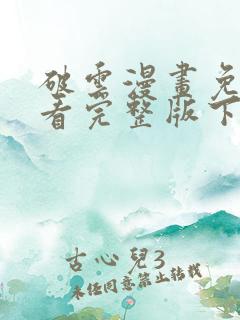 破雲漫畫免
看完整版下
古心兒3
未经同意禁止转载